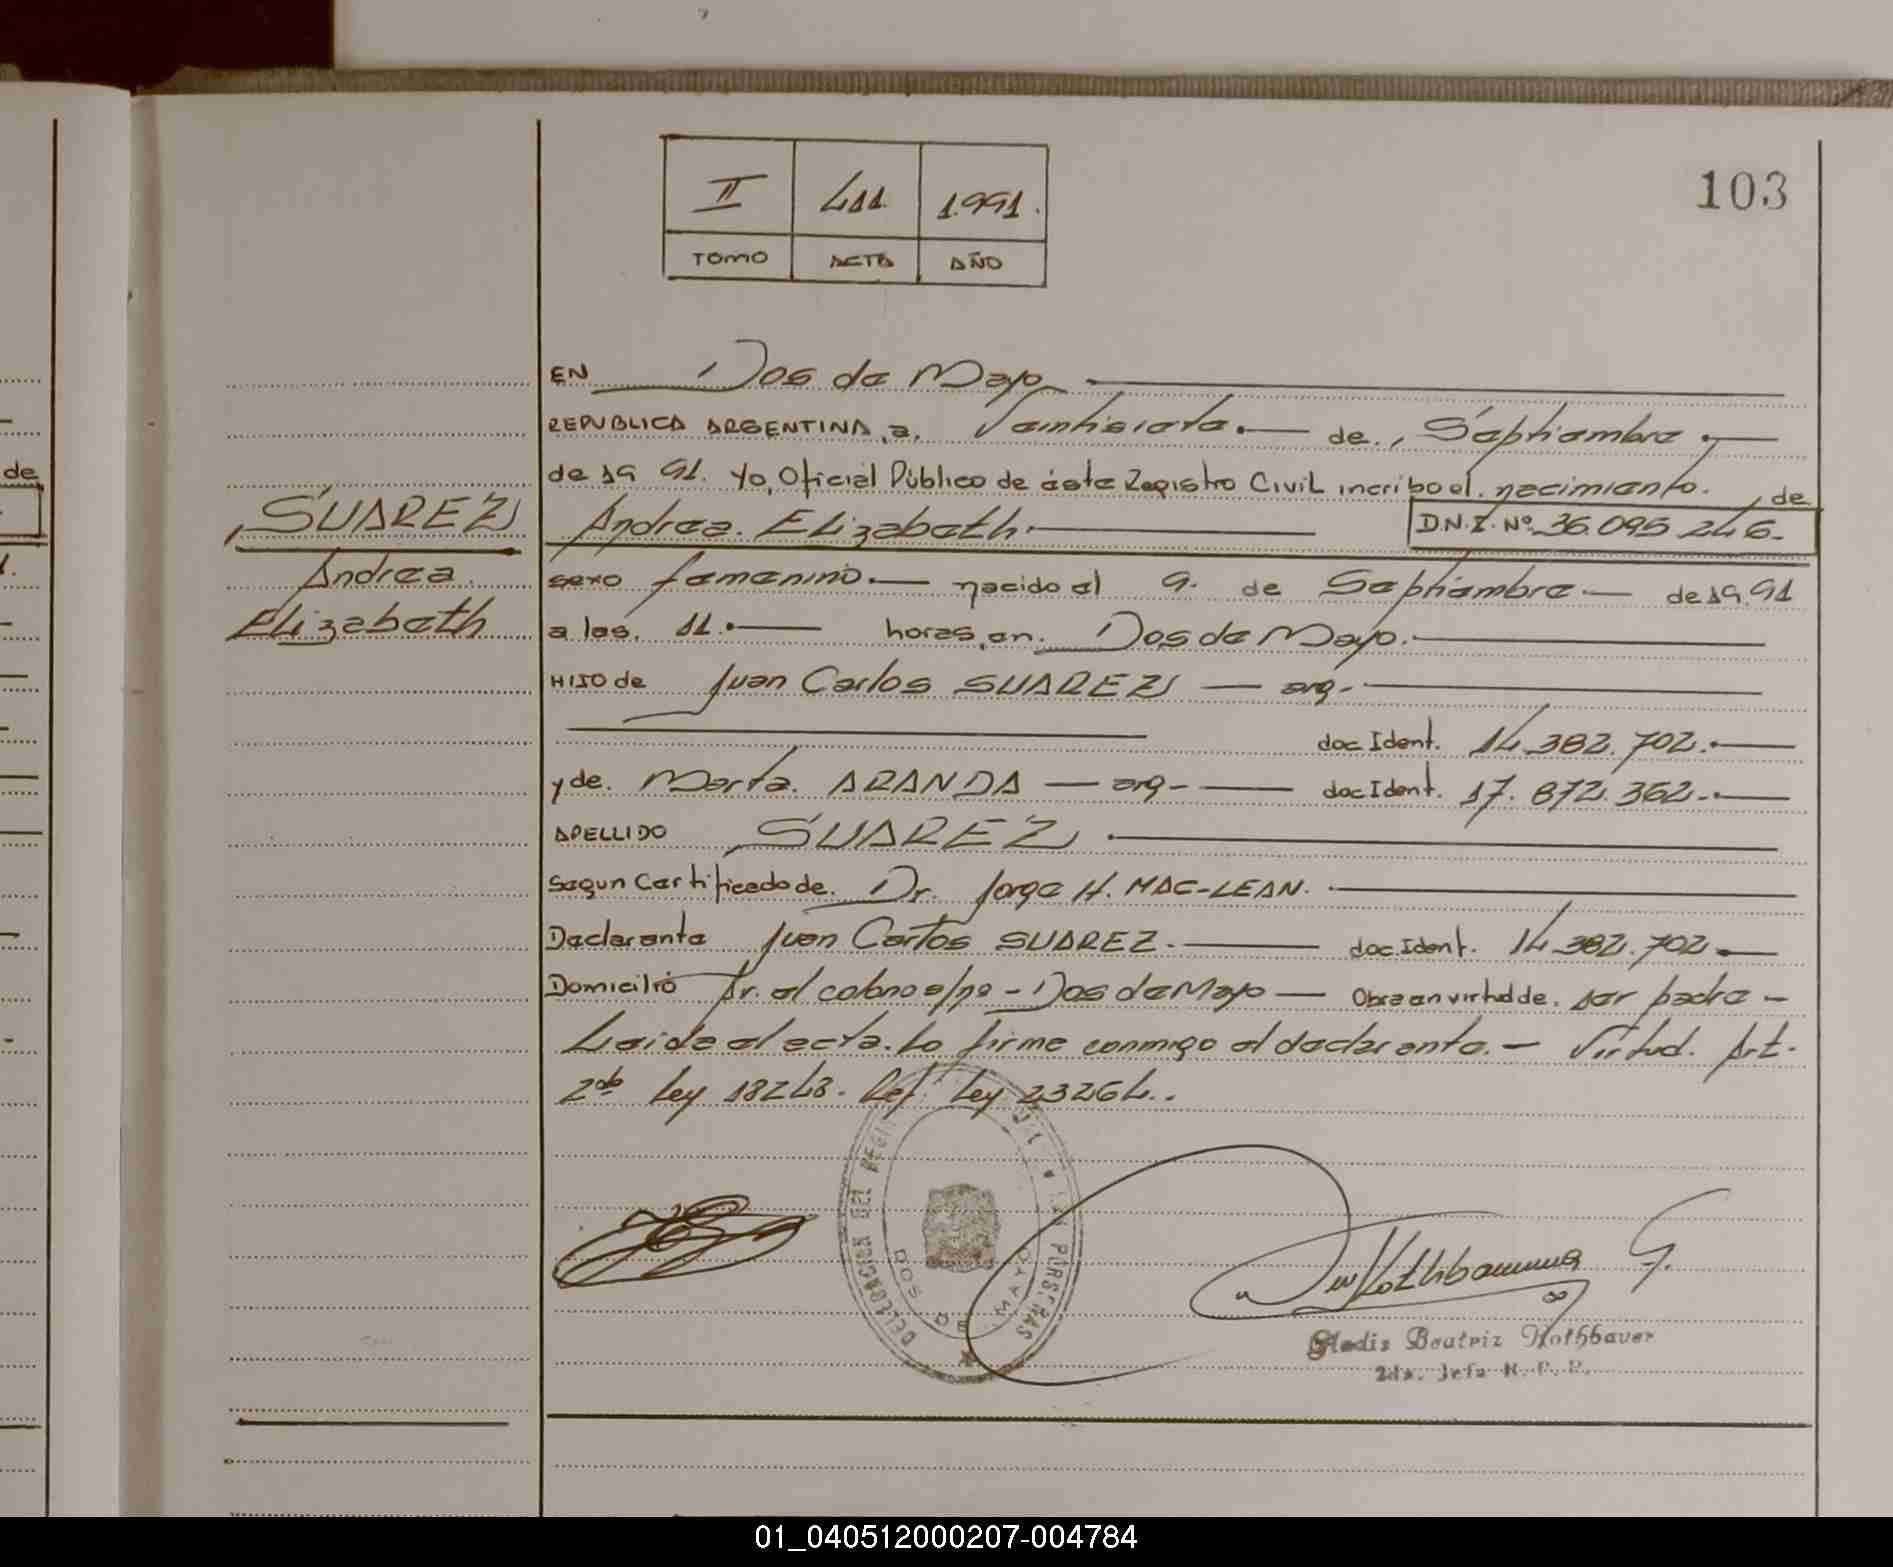 103
II 411 1.991.
TOMO ACTA AÑO
EN Dos de Mayo
REPUBLICA ARGENTINA, a Veintisiete.— de Septiembre.—
de 19 91. Yo, Oficial Público de éste Registro Civil incribo el nacimiento. de
SUAREZ
Andrea. Elizabeth.— D.N.I. Nº 36.095.246.
Andrea
Elizabeth
sexo femenino.— nacido el 9. de Septiembre.— de 19.91
a las. 11.— horas, en. Dos de Mayo.—
HIJO de Juan Carlos SUAREZ — arg.-
doc Ident. 14.382.702.—
y de. Marta. ARANDA — arg- — doc Ident. 17.872.362.-—
APELLIDO SUAREZ.—
Segun Certificado de. Dr. Jorge H. MAC-LEAN.—
Declarante Juan Carlos SUAREZ.— doc. Ident. 14.382.702.—
Domicilio Ar. el cabure s/nº - Dos de Mayo — Obra en virtud de. ser padre -
Leida el acta. Lo firme conmigo el declarante.— Virtud. Art.
2do Ley 18248. Ref: Ley 23264..
DELEGACION DEL
DOS DE MAYO
Gladis Beatriz Rothbauer
2da. Jefa R. P. P.
de
01_040512000207-004784